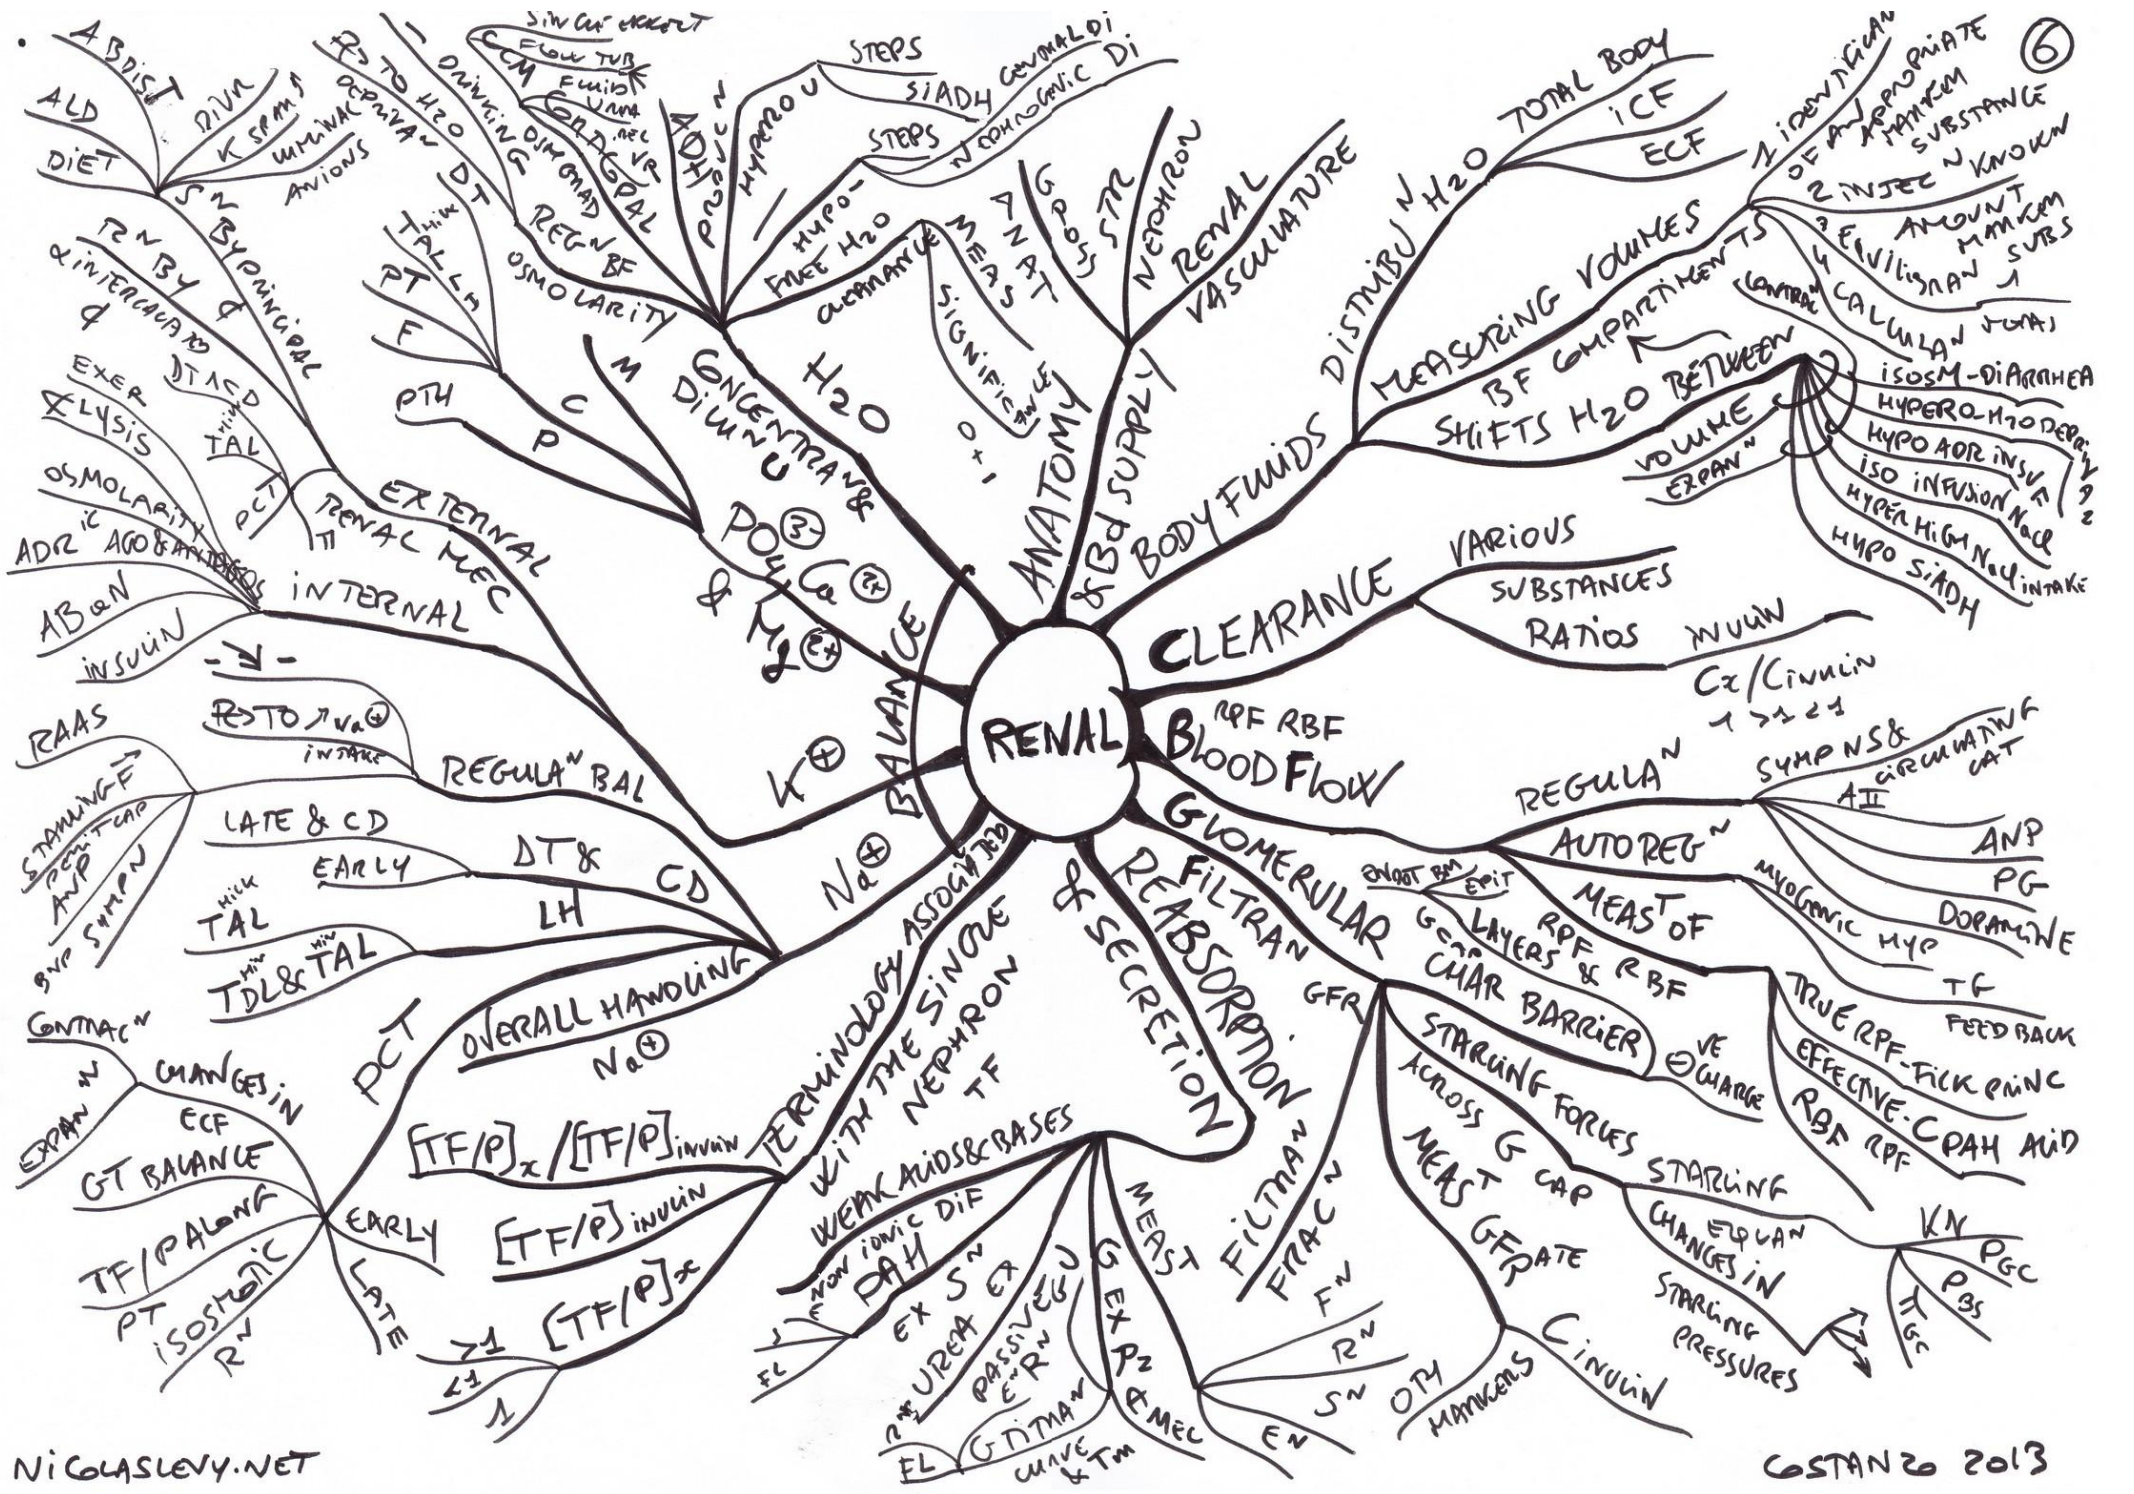 6
RENAL
ANATOMY
& Bd SUPPLY
ANAT
GROSS
STR
NEPHRON
RENAL
VASCULATURE
BODY FLUIDS
DISTRIBU N H2O
TOTAL BODY
ICF
ECF
MEASURING VOLUMES
BF COMPARTIMENTS
1 IDENTIFICAN
OF AN APPROPRIATE
MARKER
SUBSTANCE
2 INJEC N KNOWN
AMOUNT
MARKER
SUBS
3 EQUILIBRAN
4 CALCULAN
SHIFTS H2O BETWEEN
CONTRAC
VOLUME
EXPAN N
ISOSM-DIARRHEA
HYPERO-H2O DEPRIV
HYPO ADR INSUF
ISO INFUSION NaCl
HYPER HIGH NaCl INTAKE
HYPO SIADH
CLEARANCE
VARIOUS
SUBSTANCES
RATIOS
INULIN
Cx/CINULIN
1 >1 <1
RPF RBF
BLOOD FLOW
REGULA N
SYMP NS &
CIRCULATING
CAT
AII
ANP
PG
DOPAMINE
AUTOREG N
MYOGENIC HYP
TG
FEEDBACK
MEAS T OF
RPF & RBF
TRUE RPF-FICK PRINC
EFFECTIVE-C PAH ACID
RBF RPF
GLOMERULAR
FILTRAN
GFR
LAYERS &
G CAP
ENDOT BM EPIT
CHAR BARRIER
⊖ VE
CHARGE
STARLING FORCES
ACROSS G CAP
STARLING
EQUAN
KN
PGC
PBS
πGC
CHANGES IN
STARLING
PRESSURES
MEAS T GFRATE
CINULIN
OTH
MARKERS
FILTRAN
FRAC N
REABSORPTION
& SECRETION
MEAST
F N
R N
S N
E N
G EX PZ
R MEC
G TITRAN
CURVE
& Tm
FL
UREA EX
PASSIVE
EX S N
PAH
FL
WEAK ACIDS & BASES
NON IONIC DIF
TERMINOLOGY ASSOCIATED
WITH THE SINGLE
NEPHRON
TF
[TF/P]x/[TF/P]INULIN
[TF/P]INULIN
[TF/P]x
>1
<1
1
BALANCE
Na+
OVERALL HANDLING
Na+
PCT
CHANGES IN
ECF
CONTRAC N
EXPAN N
GT BALANCE
TF/P ALONG
PT
ISOSMOTIC
R N
EARLY
LATE
LH
THICK
TAL
TDL & TAL
THIN
THIN
DT &
CD
LATE & CD
EARLY
REGULA N BAL
R→ TO ↗ Na+
INTAKE
RAAS
STARLING F
PERIT CAP
ANP
SYMP N
BNP
K+
INTERNAL
INSULIN
AB BAN
ADR IC AGO & ANTAGOS
OSMOLARITY
¢ LYSIS
EXER
EXTERNAL
RENAL MEC
PCT
THICK
TAL
DT & CD
R N BY ¢
α INTERCALATED
¢
S N BY PRINCIPAL
¢
DIET
ALD
AB DIST
DIUR
K SPAR
LUMINAL
ANIONS
PO4 3- Ca 2+
& Mg 2+
P
PTH
C
F
PT
THICK
TAL LH
DT
M
H2O
CONCENTRAN &
DILUN U
REG N BF
OSMOLARITY
DRINKING
R→ TO H2O
DEPRIVAN
OSM GRAD
CORTICOPAPIL
CCM
SINGLE EFFECT
FLOW TUB
FLUID
UREA
REC
VR
ADH
PRODUC N
HYPERO U
STEPS
SIADH
HYPO-
STEPS
CENTRAL DI
NEPHROGENIC DI
FREE H2O
CLEARANCE
MEAS
SIGNIFICANCE
0 + -
NICOLASLEVY.NET
COSTANZO 2013